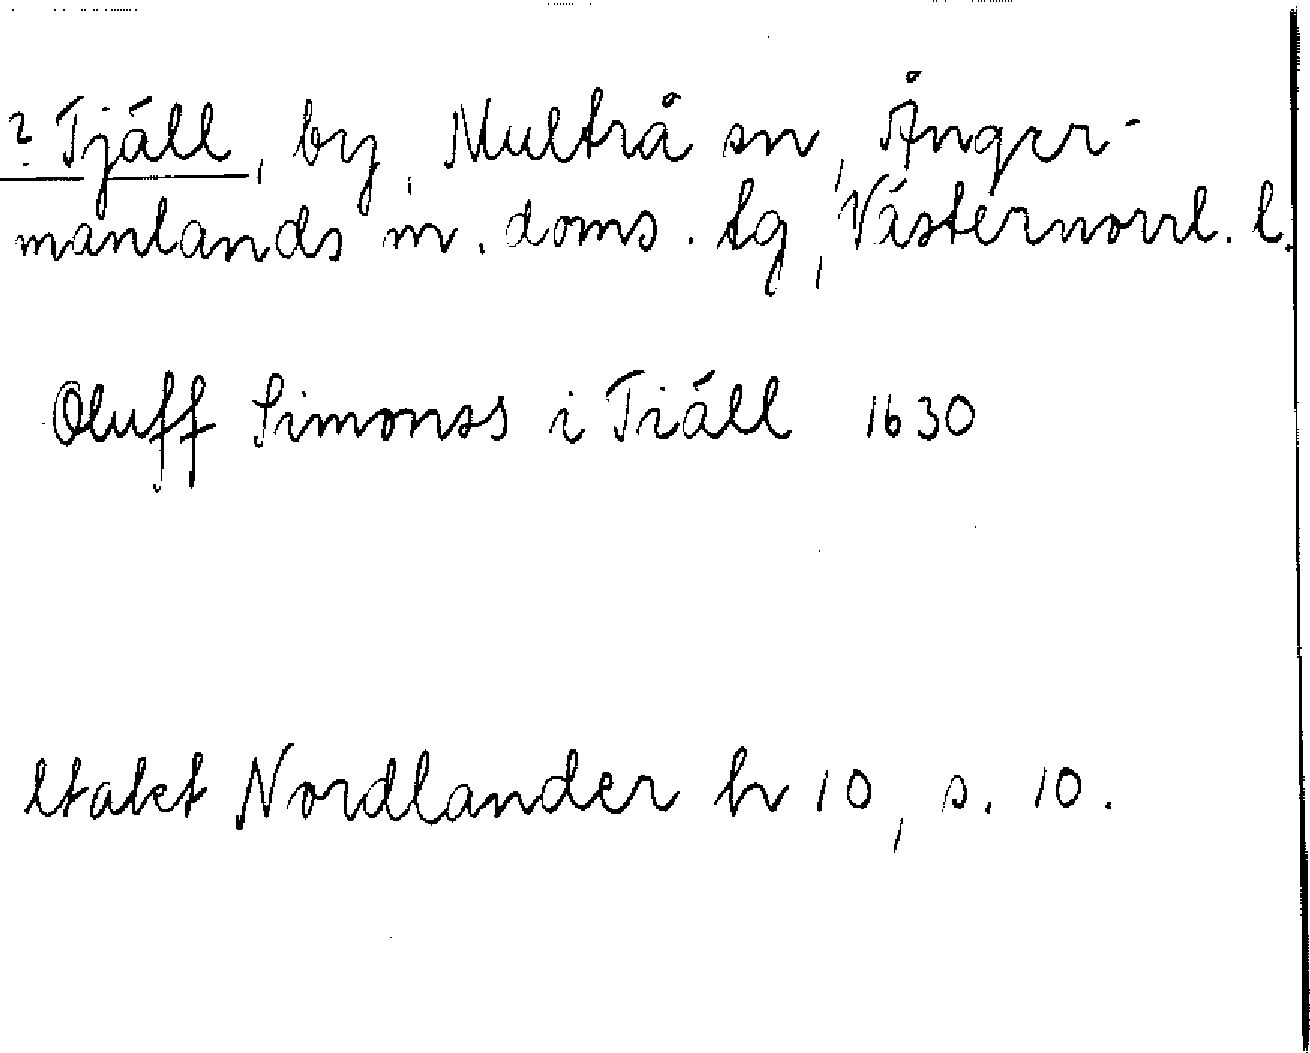 ? Tjäll, by, Multrå sn, Ånger-
manlands m. doms. tg, Västernorrl. l.
Oluff Simonss i Tiäll 1630
Utakt Nordlander hr 10, s. 10.